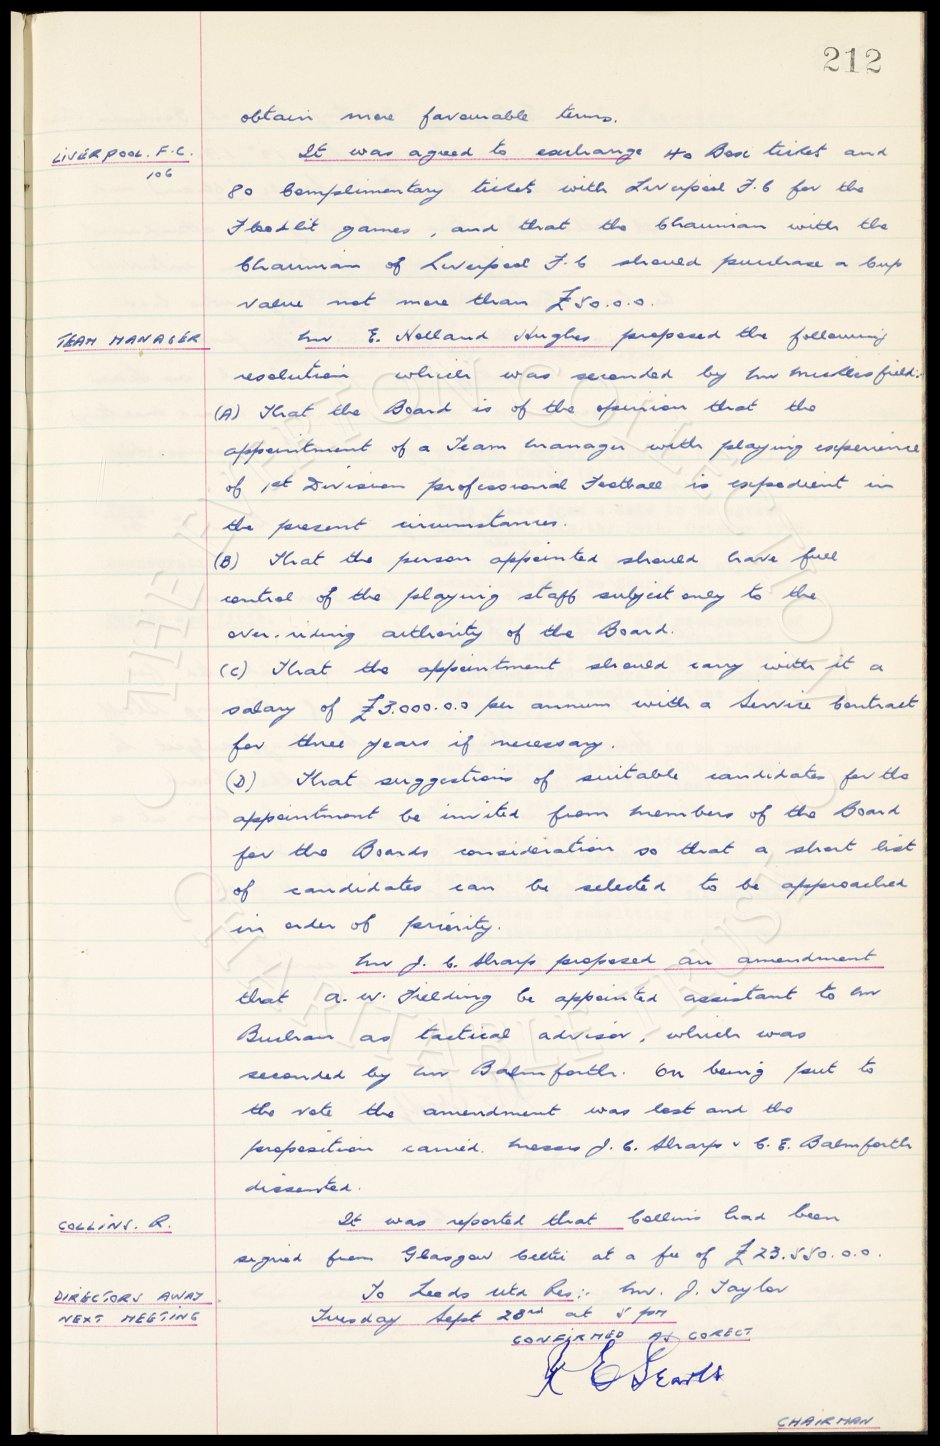 212
obtain more favourable terms.
LIVERPOOL. F.C. It was agreed to exchange 40 Box ticket and
106
80 Complimentary tickets with Liverpool F.C for the
Floodlit games, and that the Chairman with the
Chairman of Liverpool F.C should purchase a Cup
value not more than £50.0.0.
TEAM MANAGER Mr E. Holland Hughes proposed the following
resolution which was seconded by Mr Micklesfield:-
(A) That the Board is of the opinion that the
appointment of a Team Manager with playing experience
of 1st Division professional Football is expedient in
the present circumstances.
(B) That the person appointed should have full
control of the playing staff subject only to the
over-riding authority of the Board.
(C) That the appointment should carry with it a
salary of £3.000.0.0 per annum with a Service Contract
for three years if necessary.
(D) That suggestions of suitable candidates for the
appointment be invited from Members of the Board
for the Boards consideration so that a short list
of candidates can be selected to be approached
in order of priority.
Mr J. C. Sharp proposed an amendment
that A. W. Fielding be appointed assistant to Mr
Buchan as tactical advisor, which was
seconded by Mr Balmforth. On being put to
the vote the amendment was lost and the
proposition carried. Messrs J. C. Sharp & C. E. Balmforth
dissented.
COLLINS. R. It was reported that Collins had been
signed from Glasgow Celtic at a fee of £23.550.0.0.
DIRECTORS AWAY To Leeds Utd Res:- Mr. J. Taylor
NEXT MEETING Tuesday Sept 23rd at 5 pm
CONFIRMED AS CORECT
E Searle
CHAIRMAN
THE EVERTON COLLECTION
CHARITABLE TRUST